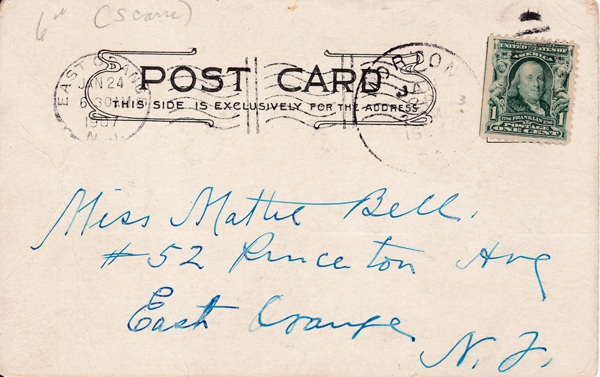 6¢ (Scarce)
EAST ORANGE
JAN 24
6 30
1907
N. J.
POST CARD
THIS SIDE IS EXCLUSIVELY FOR THE ADDRESS
JAN
UNITED STATES OF
AMERICA
1 1
POSTAGE
ONE CENT
3
Miss Mattie Bell.
#52 Princeton Ave
East Orange
N. J.